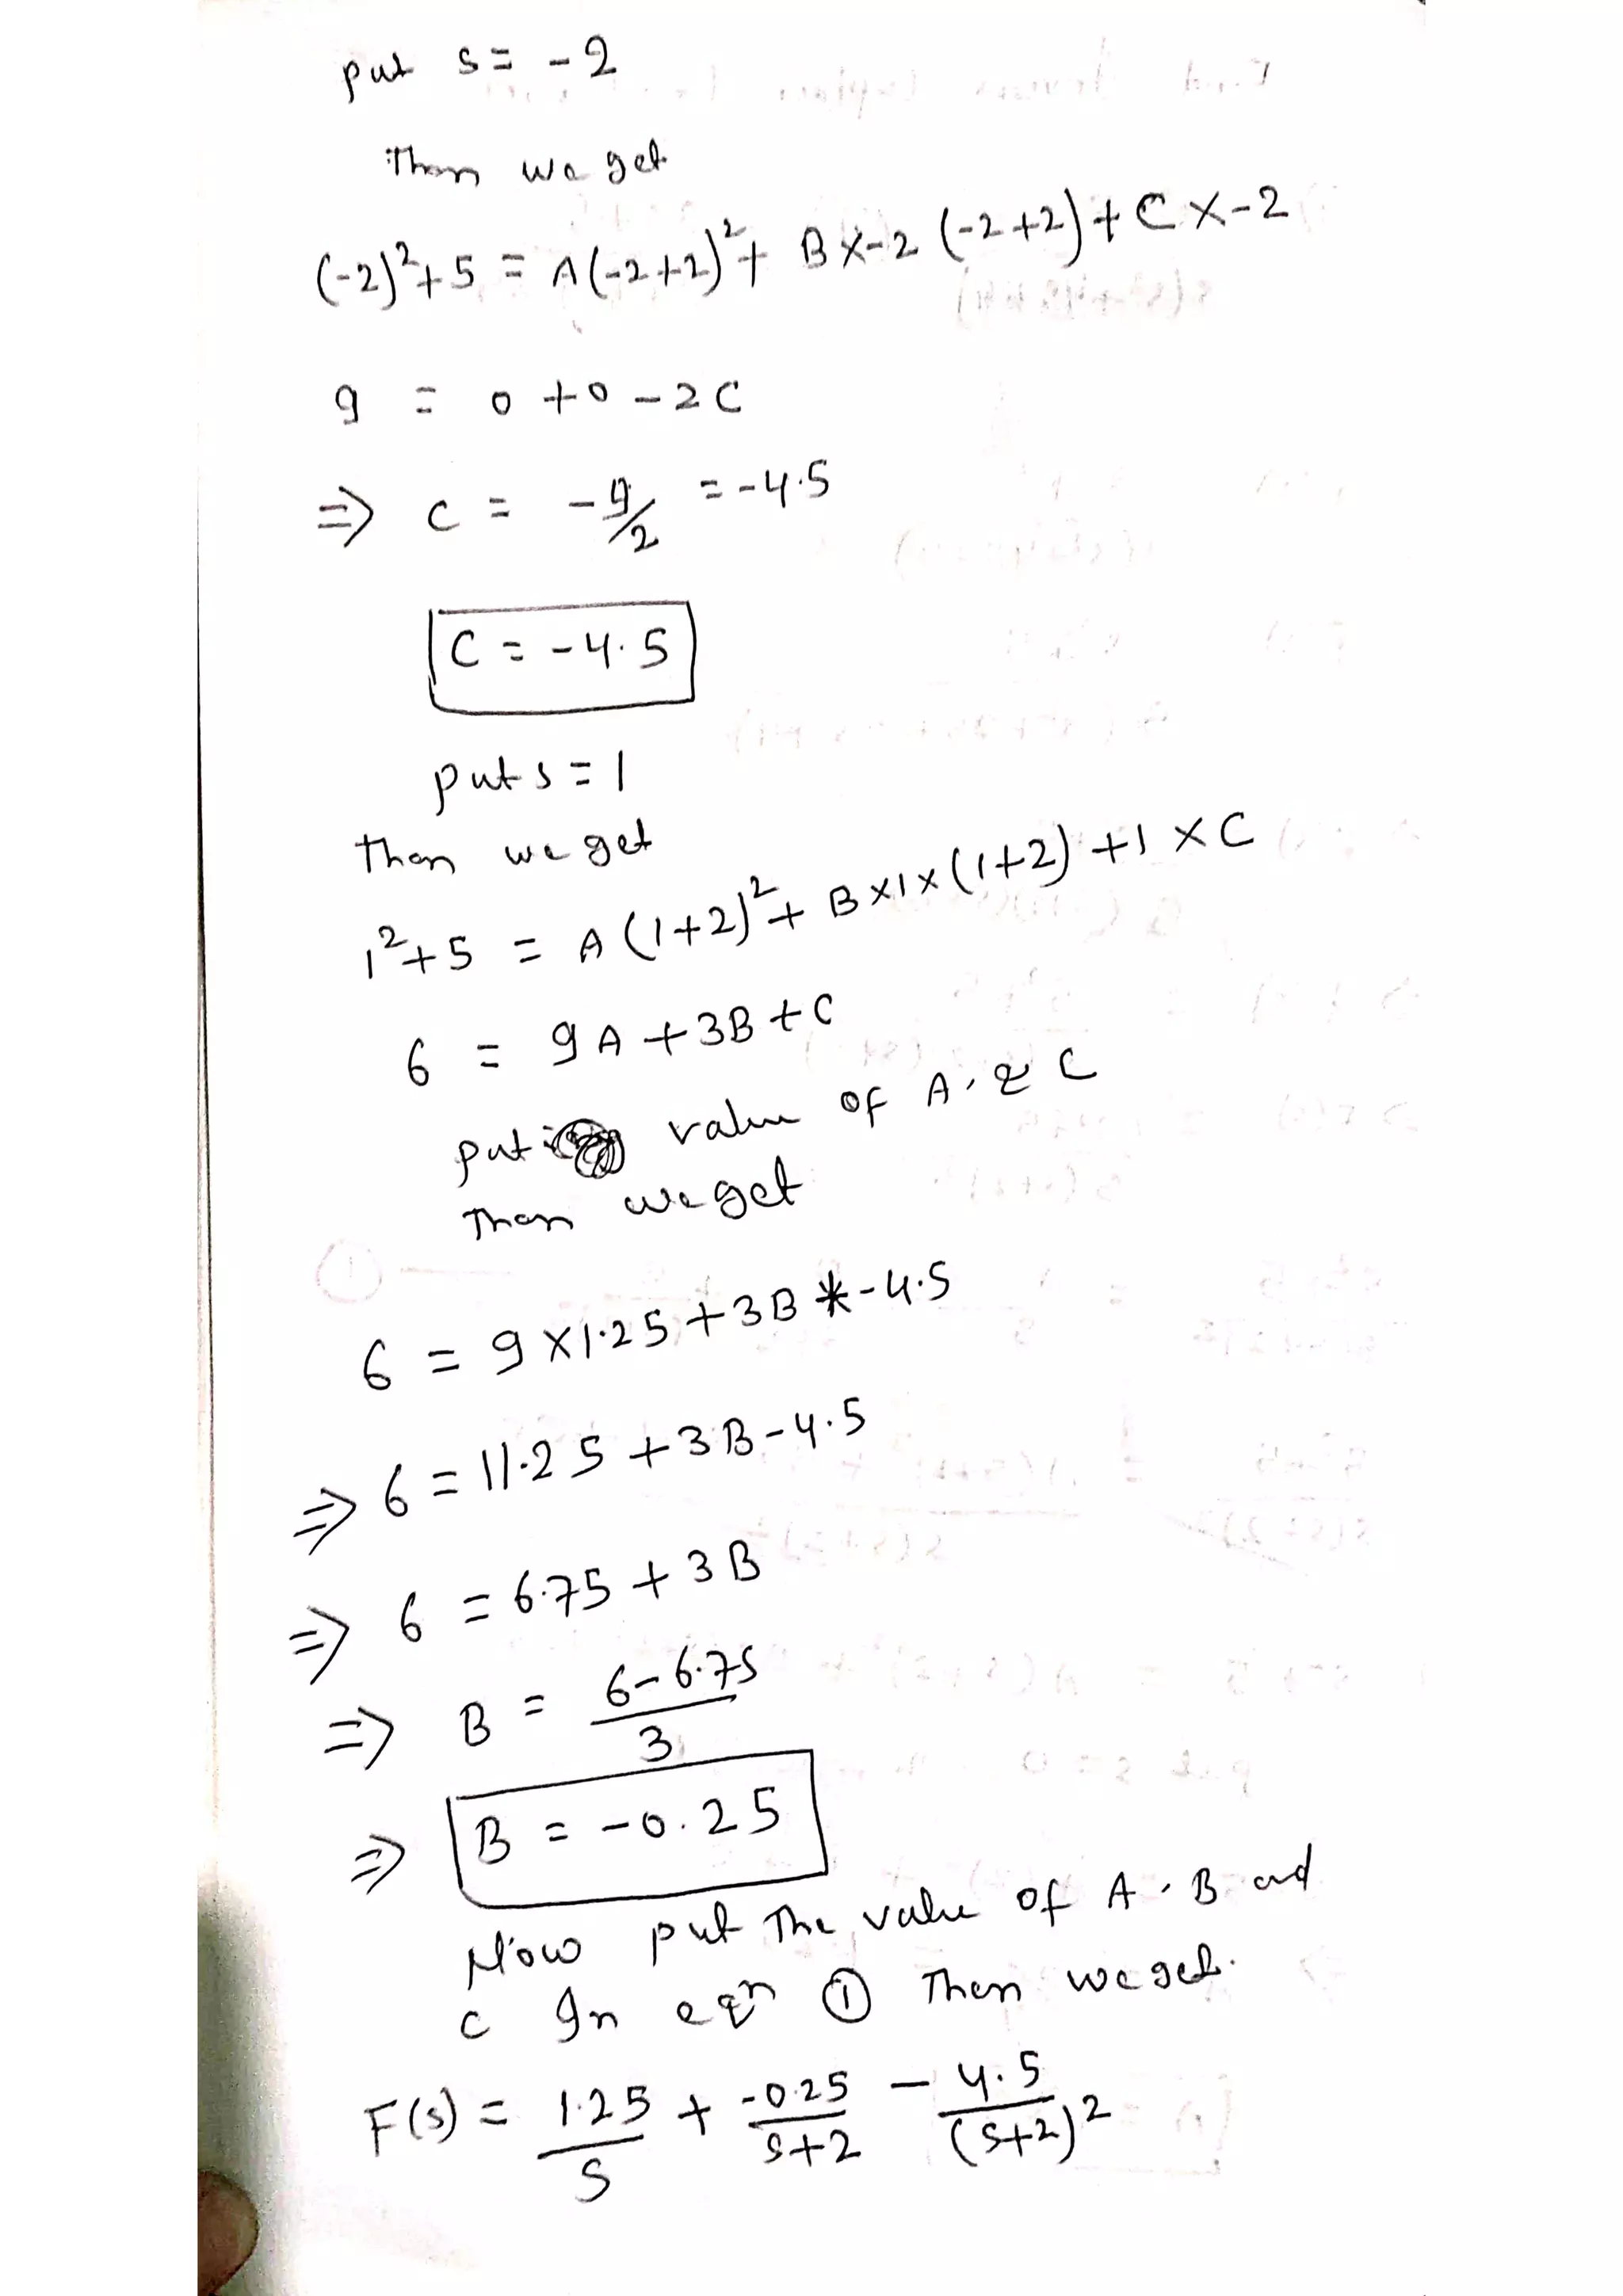 put s = -2
Then we get
(-2)²+5 = A(-2+2)²+ B×-2 (-2+2)+ C×-2
9 = 0 +0 -2C
⇒ C = -9/2 = -4.5
C = -4.5
put s = 1
then we get
1²+5 = A(1+2)²+ B×1×(1+2) +1 ×C
6 = 9A +3B +C
put value of A, & C
Then we get
6 = 9×1.25 +3B * -4.5
⇒ 6 = 11.25 +3B -4.5
⇒ 6 = 6.75 + 3B
⇒ B = (6-6.75)/3
⇒ B = -0.25
Now put The value of A, B and
C In eqn ① Then we get.
F(s) = 1.25/S + -0.25/S+2 - 4.5/(S+2)²